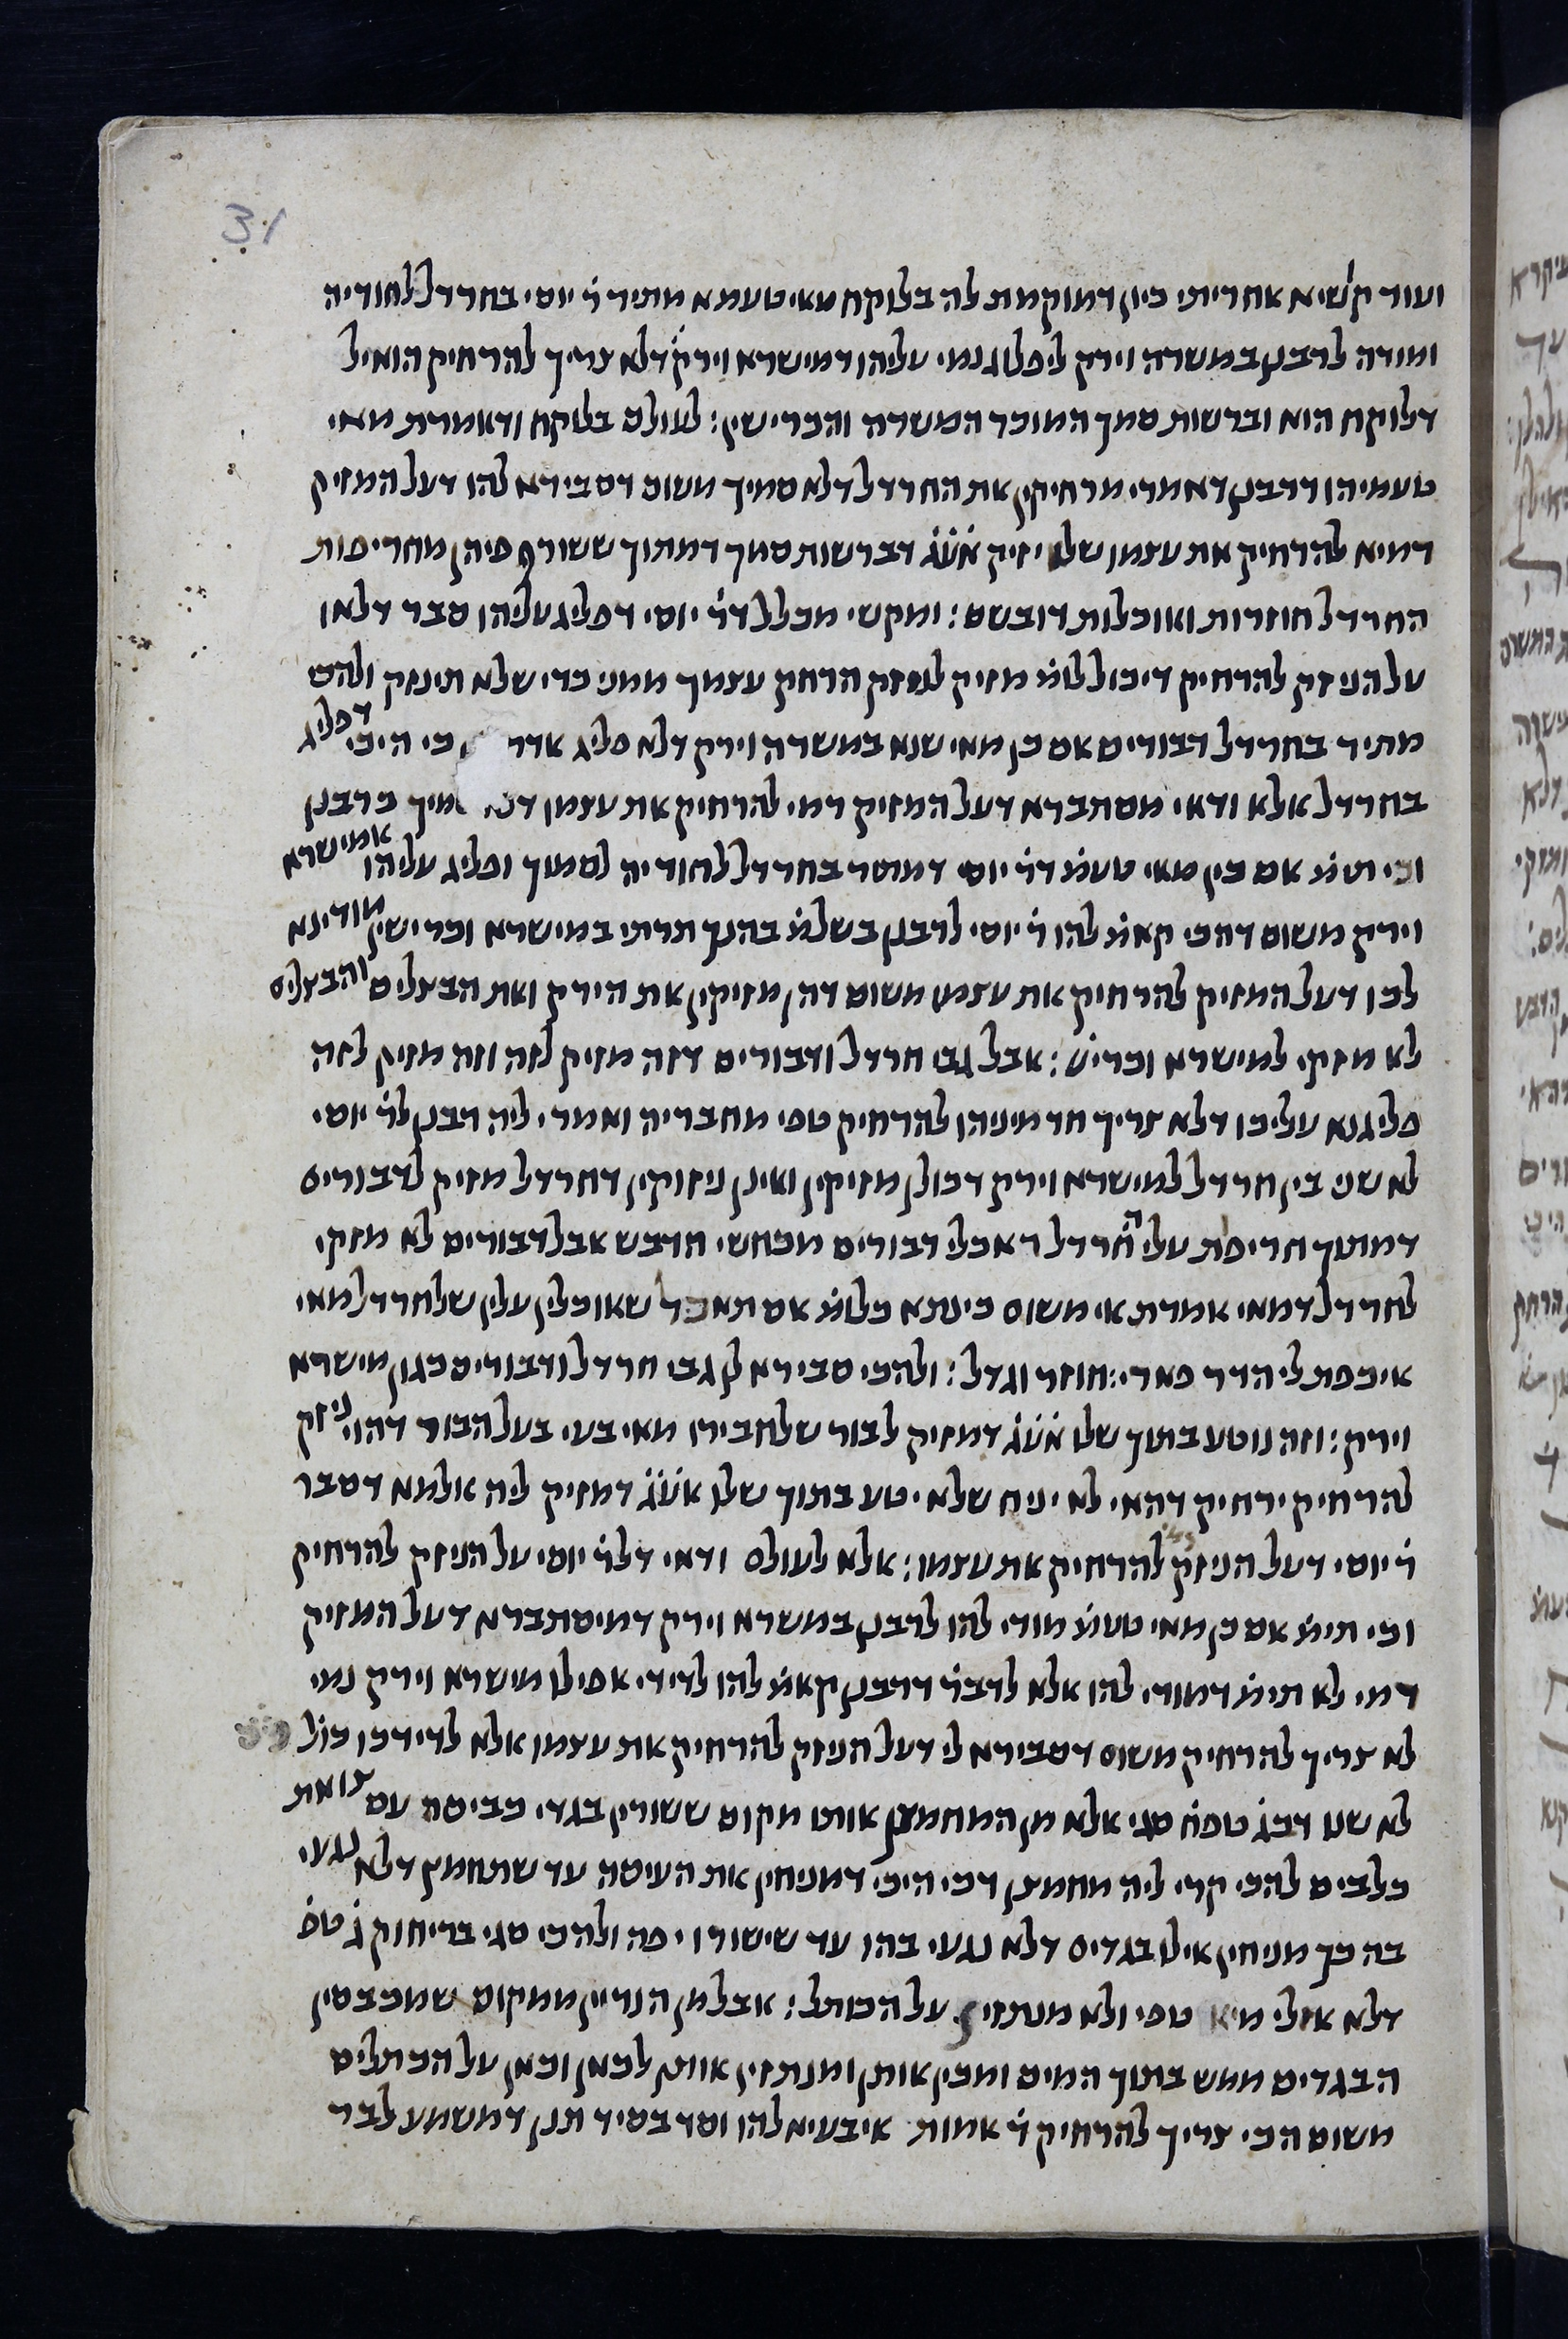 31
ועוד קשיא אחריתי כיון דמוקמת לה בלוקח מאי טעמא מתיר ר יוסי בחרדל לחודיה
ומודה לרבנן במשרה וירק ליפלוג נמי עליהו דמישרא וירק דלא צריך להרחיק הואיל
דלוקח הוא וברשות סמך המוכר המשרה והכרישין: לעולם בלוקח ודאמרת מאי
טעמיהו דרבנן דאמרי מרחיקין את החרדל דלא סמיך משום דסבירא להו דעל המזיק
דמיא להרחיק את עצמו שלא יזיק אעג דברשות סמך דמתוך ששורף פיהן מחריפות
החרדל חוזרות ואוכלות דובשם: ומקשי מכלל דר יוסי דפליג עליהו סבר דלאו
על הניזק להרחיק דיכול למ מזיק לניזק הרחק עצמך ממני כדי שלא תינזק ולהם
מתיר בחרדל דבורים אם כן מאי שנא במשרה וירק דלא פליג אדר כי היכי דפליג
בחרדל אלא ודאי מסתברא דעל המזיק דמי להרחיק את עצמו מיך כרבנן
וכי תימ אם כין מאי טעמ דר יוסי דמתר בחרדל לחודיה לסמוך ופליג עליהו אמישרא
וירק משום דהכי קאמ להו ר יוסי לרבנן בשלמ בהנך תרתי במישרא וכרישין מודינא
לכו דעל המזיק להרחיק את עצמו משום דהן מזיקין את הירק ואת הבצלים והבצלים
לא מזקי למישרא וכריש: אבל גבי חרדל ודבורים דזה מזיק לזה וזה מזיק לזה
פליגנא עליכו דלא צריך חד מיניהו להרחיק טפי מחבריה ואמרי ליה רבנן לר יוסי
לא שני בין חרדל למישרא וירק דכולן מזיקין ואינן ניזוקין דחרדל מזיק לדבורים
דמתוך חריפת עלי החרדל דאכלי דבורים מכחשי הדבש אבל דבורים לא מזקי
לחרדל דמאי אמרת אי משום כינתא כלומ אם תאמר שאוכלין עלין של חרדל מאי
איכפת לי הדר פארי: חוזר וגדל: ולהכי סבירא לן גבי חרדל ודבורים כגון מישרא
וירק: וזה נוטע בתוך שלו אעג דמזיק לבור של חבירו מאי בעי בעל הבור דהוי ניזק
להרחיק ירחיק דהאי לא יניח שלא יטע בתוך שלו אעג דמזיק ליה אלמא דסבר
ר יוסי דעל הניזק להרחיק את עצמו: אלא לעולם ודאי דלר יוסי על הניזק להרחיק
וכי תימ אם כן מאי טעמ מודי להו לרבנן במשרא וירק דמיסתברא דעל המזיק
דמי לא תימ דמודי להו אלא לדבר דרבנן קאמ להו לדידי אפילו מישרא וירק נמי
לא צריך להרחיק משום דסבירא לי דעל הניזק להרחיק את עצמו אלא לדידכו כול
לא שנו דבג טפח סגי אלא מן המחמצן אותו מקום ששורק בגדי כביסה עם צואת
כלבים להכי קרי ליה מחמצן דכי היכי דמניחין את העיסה עד שתחמץ דלא נגעי
בה כך מניחין אילו בגדים דלא נגעי בהו עד שישורו יפה ולהכי סגי בריחוק ג טפ
דלא אזלי מיא טפי ולא מנתזין על הכותל: אבל מן הנדיין ממקום שמכבסין
הבגדים ממש בתוך המים ומכין אותן ומנתזין אותן לכאן ולכאן על הכתלים
משום הכי צריך להרחיק ד אמות איבעיא להו וסד בסיד תנן דמשמע לבר